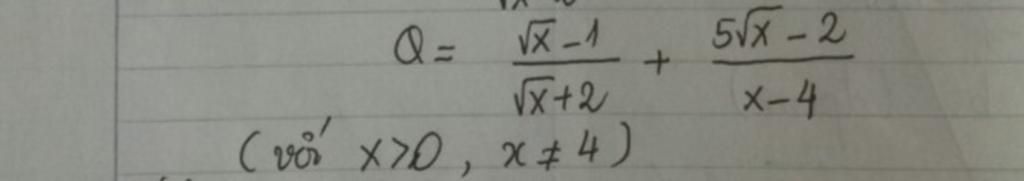 Q = \frac{\sqrt{x}-1}{\sqrt{x}+2} + \frac{5\sqrt{x}-2}{x-4}
(với x>0, x≠4)